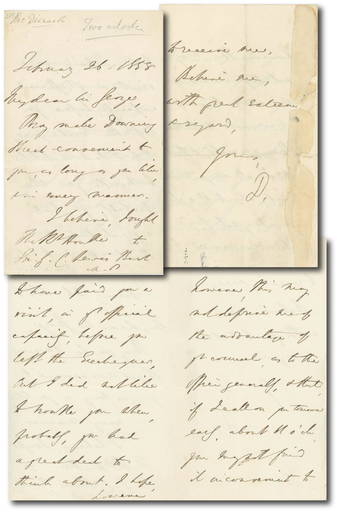 Two notes
February 26 1858
My dear Sir George,
Pray make Downing
Street convenient to
you, as long as you like,
& in every manner.
I believe, I ought
The Rt Honble
Sir G. C. Lewis Bart
M.P.
to
to have paid you a
visit, in yr official
capacity, before you
left the Exchequer,
but I did not like
to trouble you when,
probably, you had
a great deal to
think about. I hope,
however
however, this may
not deprive me of
the advantage of
yr counsel, as to the
office generally, & that,
if I call on you tomorrow
early, about 11 o'ck
you may not find
it inconvenient to
to receive me.
Believe me,
with great esteem
& regard,
Yours,
D.